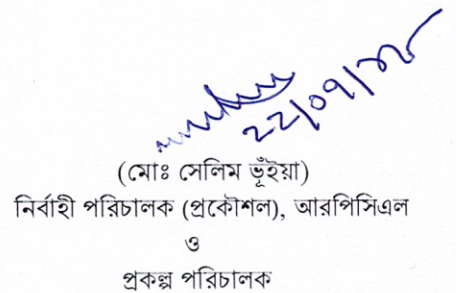 ২২/০৭/২৫
(মোঃ সেলিম ভূঁইয়া)
নির্বাহী পরিচালক (প্রকৌশল), আরপিসিএল
ও
প্রকল্প পরিচালক